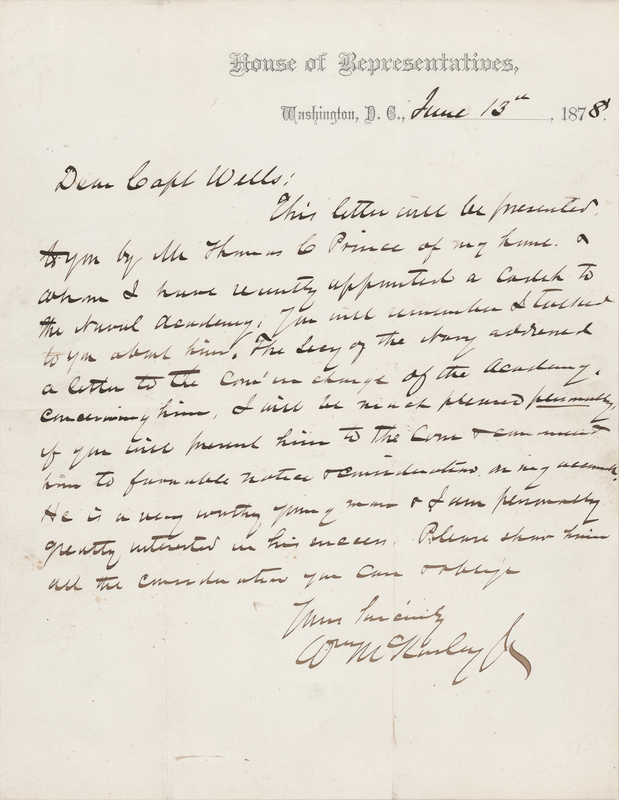 House of Representatives,
Washington, D. C., June 13th, 1878.
Dear Capt Wells;
This letter will be presented
to you by Mr Thomas C Prince of my home. &
whom I have recently appointed a Cadet to
the Naval Academy; You will remember I talked
to you about him. The Secy of the Navy addressed
a letter to the Com' in charge of the Academy,
concerning him, I will be much pleased personally,
if you will present him to the Com & commend
him to favorable notice & consideration on my account.
He is a very worthy young man & I am personally
greatly interested in his success. Please show him
all the consideration you can & oblige
Yours Sincerely
Wm McKinley Jr